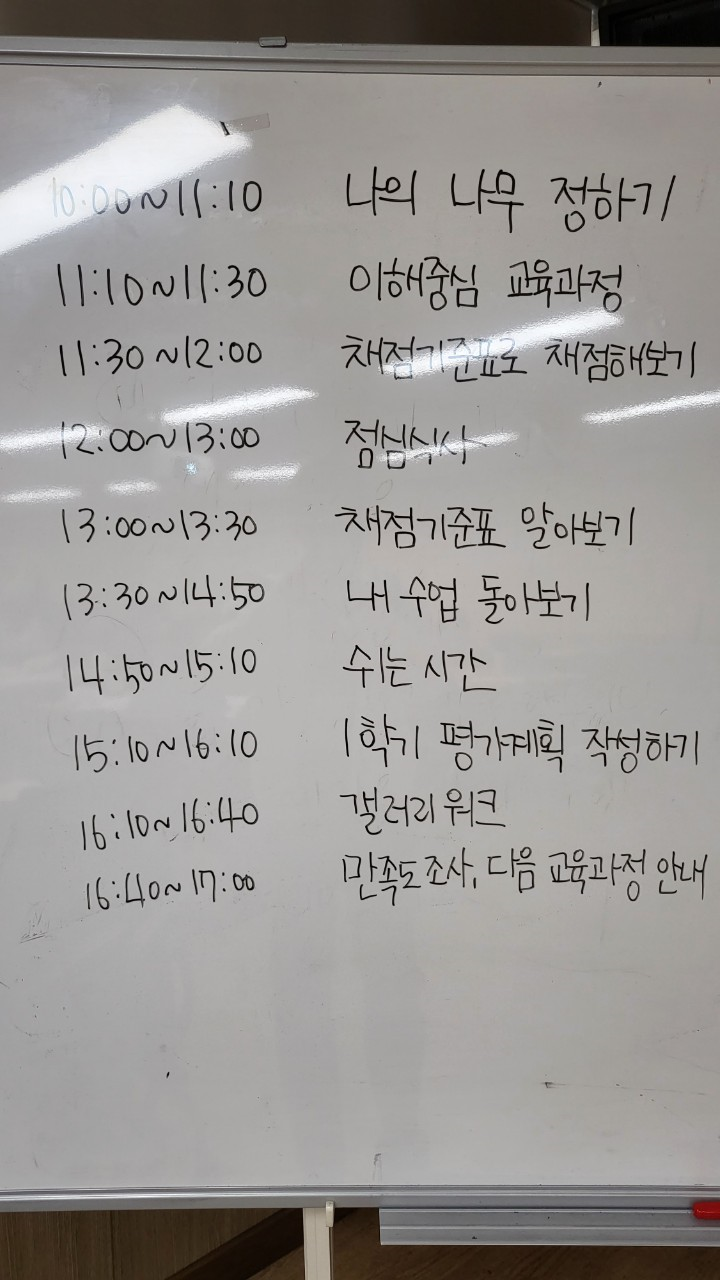 10:00~11:10 나의 나무 정하기
11:10~11:30 이해중심 교육과정
11:30~12:00 채점기준표로 채점해보기
12:00~13:00 점심식사
13:00~13:30 채점기준표 알아보기
13:30~14:50 내 수업 돌아보기
14:50~15:10 쉬는 시간
15:10~16:10 1학기 평가계획 작성하기
16:10~16:40 갤러리워크
16:40~17:00 만족도조사, 다음 교육과정 안내